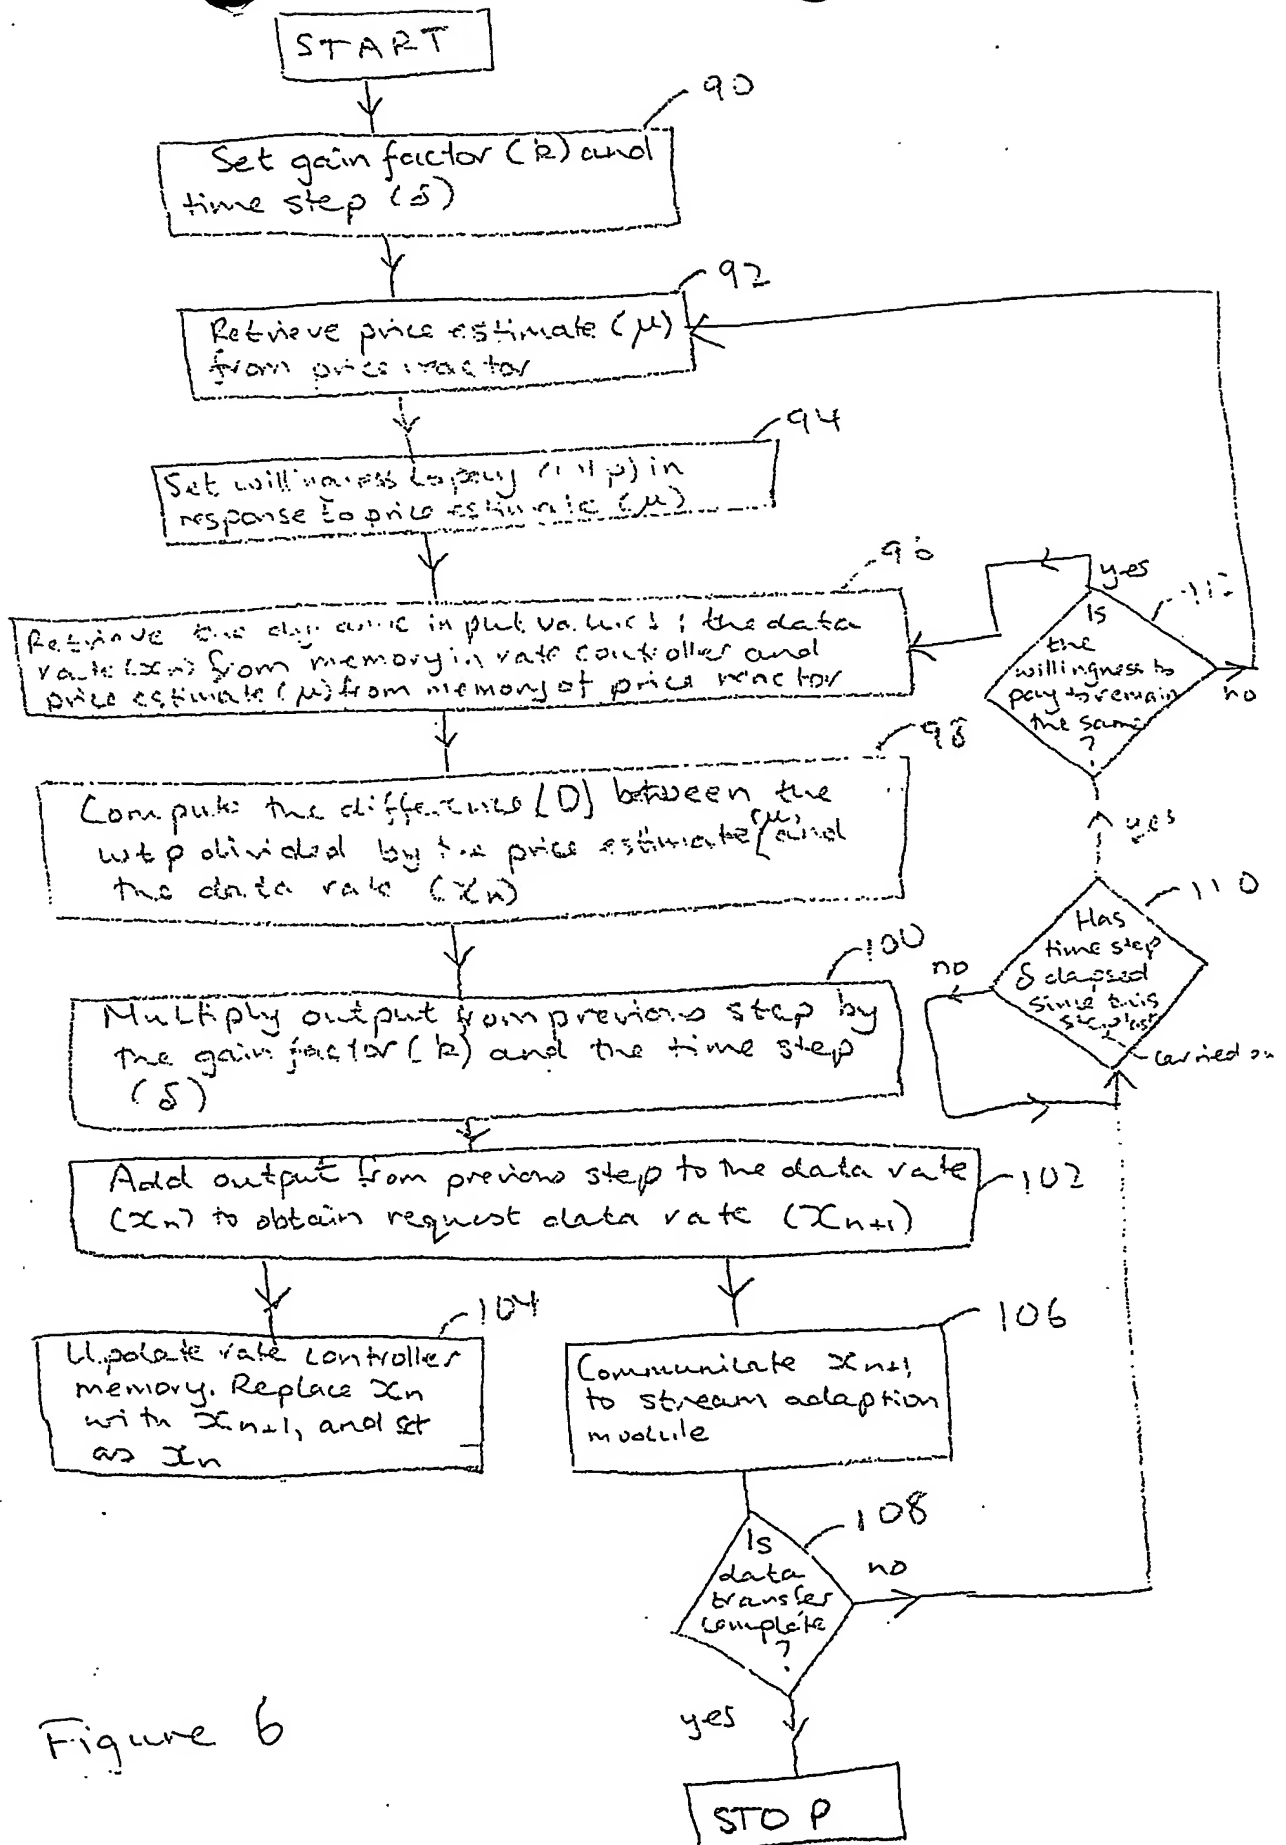 START
90
Set gain factor (k) and
time step (δ)
92
Retrieve price estimate (μ)
from price reactor
94
Set willingness to pay (wtp) in
response to price estimate (μ)
96
Retrieve the dynamic input values; the data
rate (xn) from memory in rate controller and
price estimate (μ) from memory of price reactor
98
Compute the difference (D) between the
wtp divided by the price estimate (μ) and
the data rate (xn)
100
Multiply output from previous step by
the gain factor (k) and the time step
(δ)
102
Add output from previous step to the data rate
(xn) to obtain request data rate (xn+1)
104
Update rate controller
memory. Replace xn
with xn+1, and set
as xn
106
Communicate xn+1
to stream adaption
module
108
Is
data
transfer
complete
?
no
yes
STOP
110
Has
time step
δ elapsed
since this
step last
carried ou
?
no
yes
112
Is
the
willingness to
pay to remain
the same
?
yes
no
Figure 6